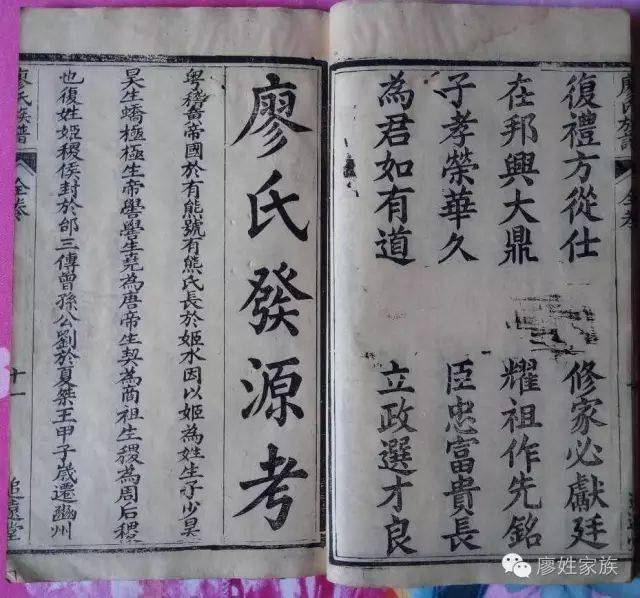 復禮方從仕　修家必獻廷
在邦興大鼎　耀祖作先銘
子孝榮華久　臣忠富貴長
為君如有道　立政選才良
廖氏發源考
粵稽黃帝國於有熊號有熊氏長於姬水因以姬為姓生子少昊
昊生蟜極極生帝嚳嚳生堯為唐帝生契為商祖生稷為周后稷
也復姓姬稷侯封於邰三傳曾孫公劉於夏桀王甲子歲遷豳州
廖氏族譜
全卷
十一
追遠堂
廖姓家族